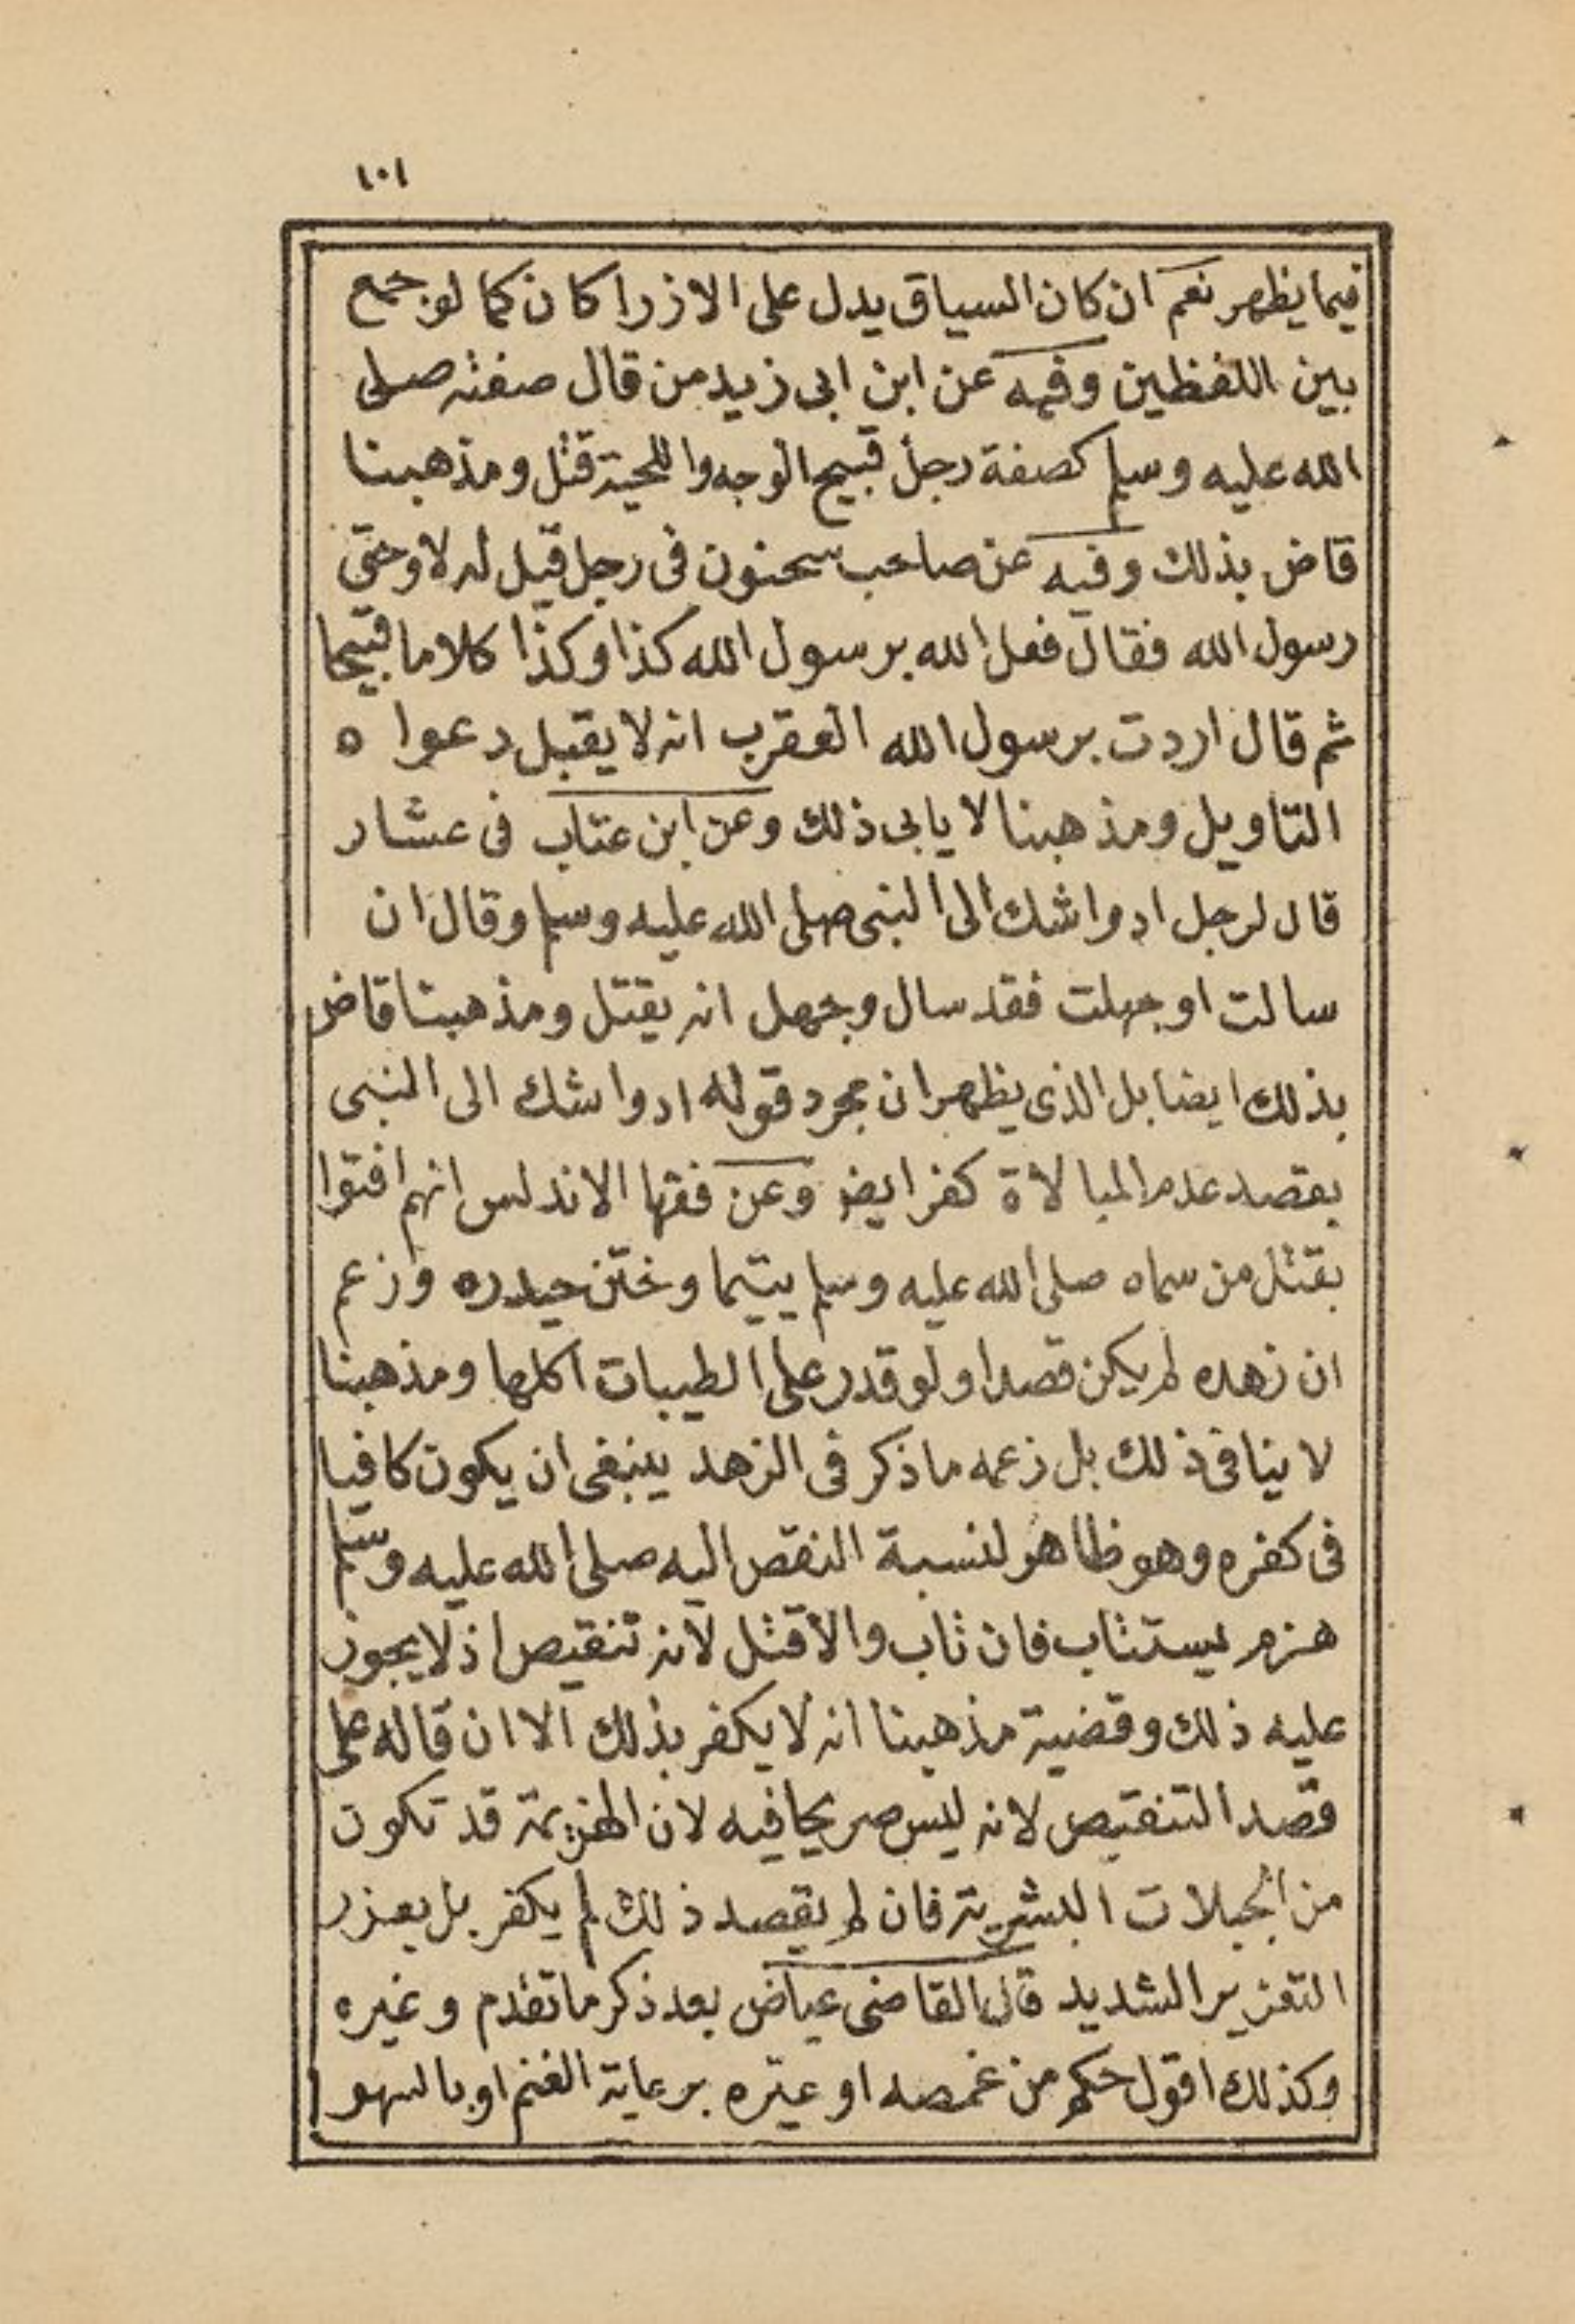 ١٠١
فيما يظهر نعم ان كان السياق يدل على الازرا كان كما لو جمع
بين اللفظين وفيه عن ابن ابى زيد من قال صفته صلى
الله عليه وسلم كصفة رجل قبيح الوجه واللحية قتل ومذهبنا
قاض بذلك وفيه عن صاحب سحنون فى رجل قيل له لا وحق
رسول الله فقال فعل الله برسول الله كذا وكذا كلاما قبيحا
ثم قال اردت برسول الله العقرب انه لا يقبل دعواه
التاويل ومذهبنا لا يابى ذلك وعن ابن عتاب فى عشار
قال لرجل اد واشك الى النبى صلى الله عليه وسلم وقال ان
سالت او جهلت فقد سال وجهل انه يقتل ومذهبنا قاض
بذلك ايضا بل الذى يظهر ان مجرد قوله اد واشك الى النبى
بقصد عدم المبالاة كفر ايض وعن فقها الاندلس انهم افتوا
بقتل من سماه صلى الله عليه وسلم يتيما وختن حيدره وزعم
ان زهده لم يكن قصدا ولو قدر على الطيبات اكلها ومذهبنا
لا ينافى ذلك بل زعمه ما ذكر فى الزهد ينبغى ان يكون كافيا
فى كفره وهو ظاهر لنسبة النقص اليه صلى الله عليه وسلم
هزم يستتاب فان تاب والا قتل لانه تنقيص اذ لا يجوز
عليه ذلك وقضية مذهبنا انه لا يكفر بذلك الا ان قاله على
قصد التنقيص لانه ليس صريحا فيه لان الهزيمة قد تكون
من الجبلات البشرية فان لم يقصد ذلك لم يكفر بل يعزر
التعزير الشديد قال القاضى عياض بعد ذكر ما تقدم وغيره
وكذلك اقول حكم من غمصه او عيره برعاية الغنم او بالسهو